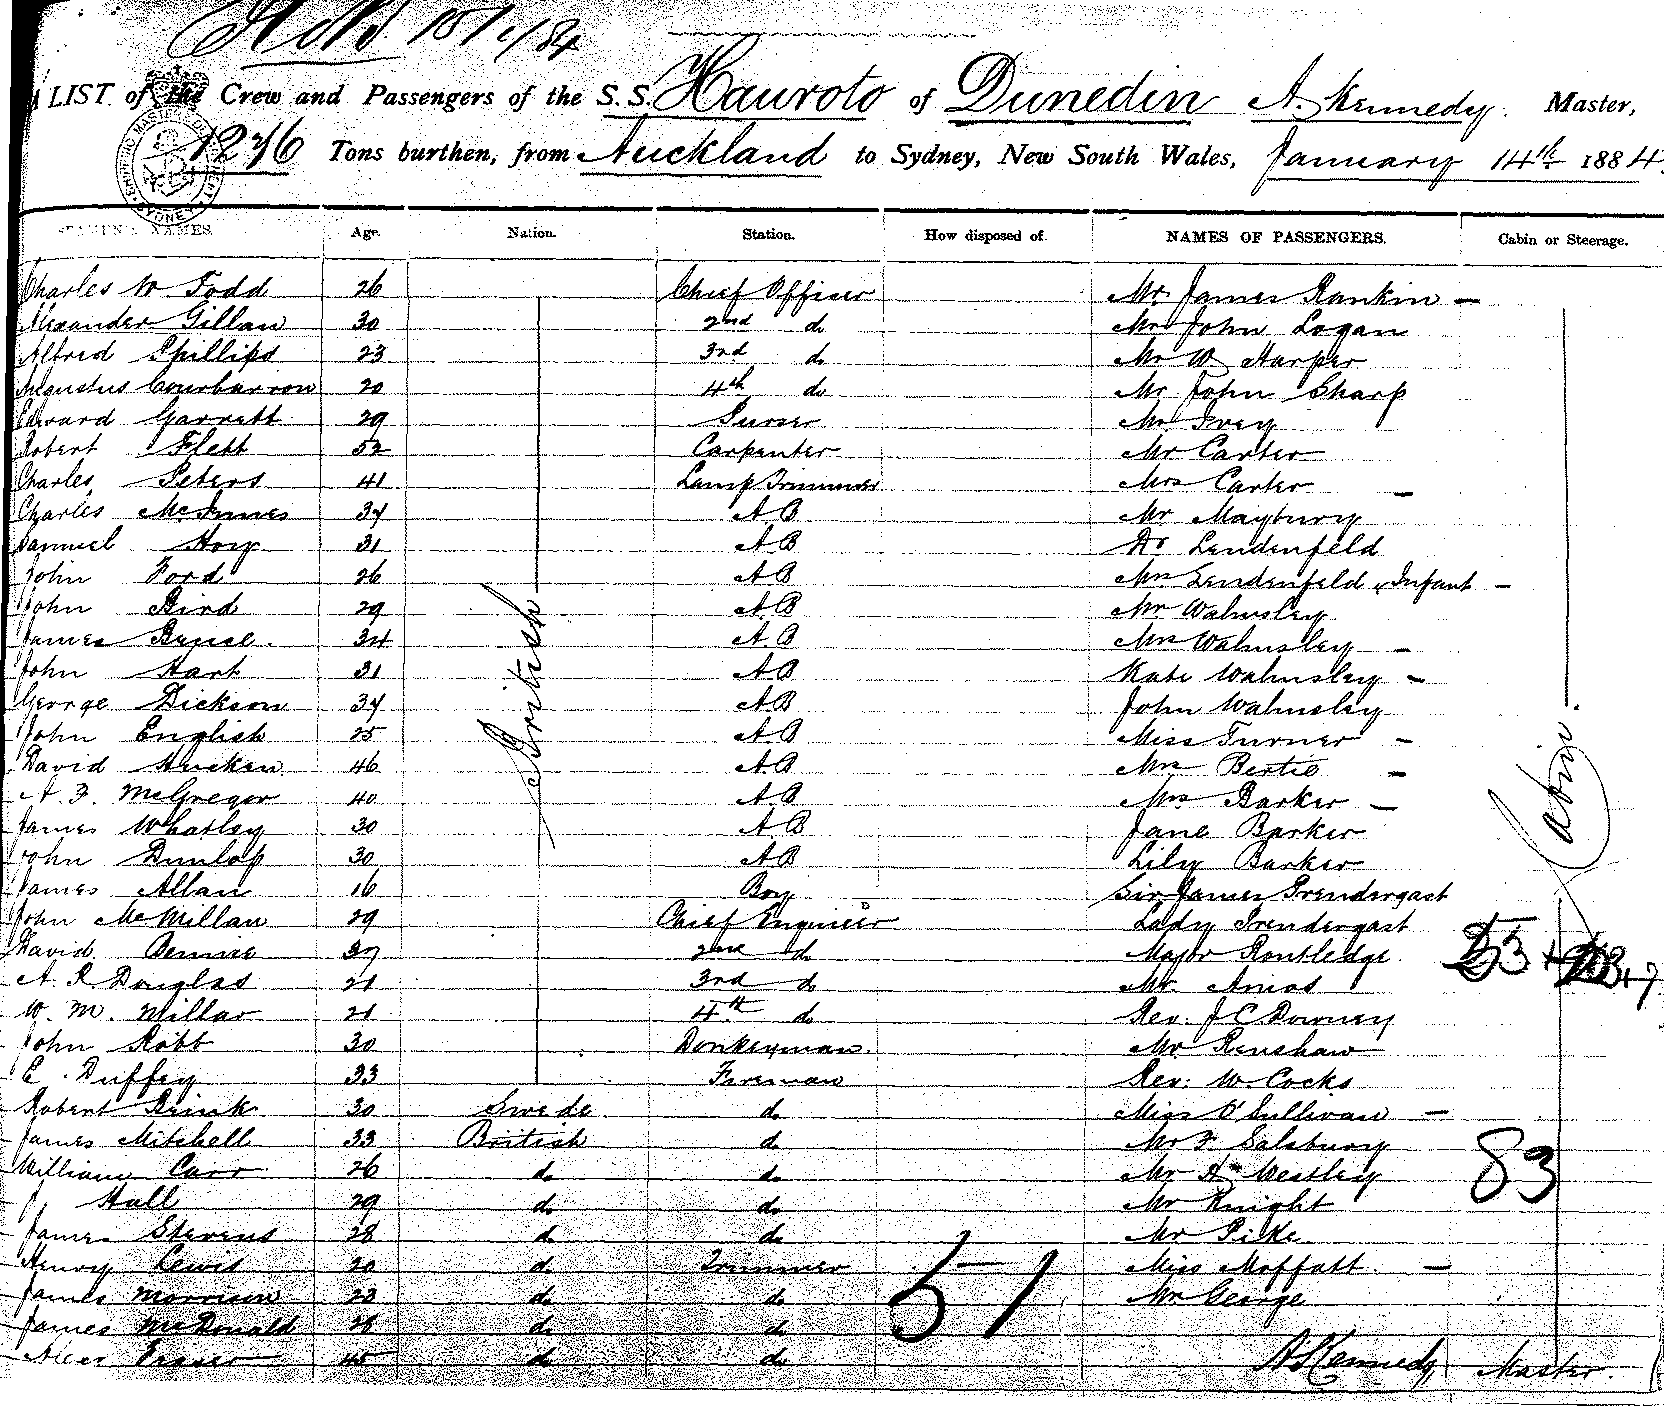 LIST of the Crew and Passengers of the S.S. Hauroto of Dunedin A. Kennedy. Master,
1276 Tons burthen, from Auckland to Sydney, New South Wales, January 14th 1884.
NAMES. Age. Nation. Station. How disposed of. NAMES OF PASSENGERS. Cabin or Steerage.
Charles W Todd 26 Chief Officer Mr James Rankin —
Alexander Gillan 30 2nd do Mr John Logan
Alfred Phillips 23 3rd do Mr W Harper
Augustus Courbarron 20 4th do Mr John Sharp
Edward Garrett 29 Purser Mr Ivey
Robert Flett 52 Carpenter Mr Carter
Charles Peters 41 Lamp Trimmer Mrs Carter —
Charles McInnes 34 AB Mr Maybury
Samuel Hoy 31 AB Dr Lendenfeld
John Ford 26 AB Mrs Lendenfeld & Infant —
John Bird 29 AB Mr Walmsley
James Bruce 34 AB Mrs Walmsley —
John Hart 31 AB Kate Walmsley —
George Dickson 34 AB John Walmsley
John English 25 AB Miss Turner —
David Hucken 46 AB Mrs Bertie —
A. F. McGregor 40 AB Mrs Barker —
James Whatley 30 AB Jane Barker
John Dunlop 30 AB Lily Barker
British
Cabin
James Allan 16 Boy Sir James Prendergast
John McMillan 29 Chief Engineer Lady Prendergast
David 2nd do Major Routledge
A. R Douglas 21 3rd do Mr Amos
W. M. Millar 21 4th do Rev. J C Downey
John Robb 30 Donkeyman Mr Renshaw
E. Duffey 33 Fireman Rev: W. Cocks
Robert Brink 30 Swede do Miss O'Sullivan —
James Mitchell 33 British do Mr F Salsbury
William Carr 26 do do Mr Westley
J. Hall 29 do do Mr Knight
83
James Stevens 28 do do Mr Pike
Henry Lewis 20 do Trimmer Miss Moffatt —
James Morrison 23 do do Mr George
51
James McDonald 28 do do
Fraser 45 do do
A Kennedy Master